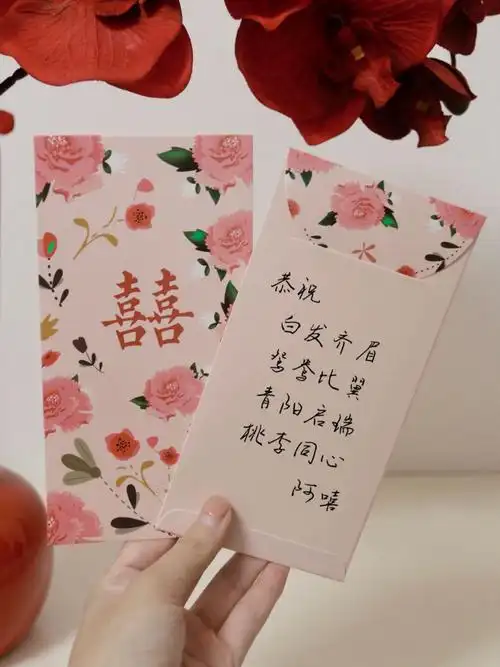 囍
恭祝
白发齐眉
鸳鸯比翼
青阳启瑞
桃李同心
阿嘻